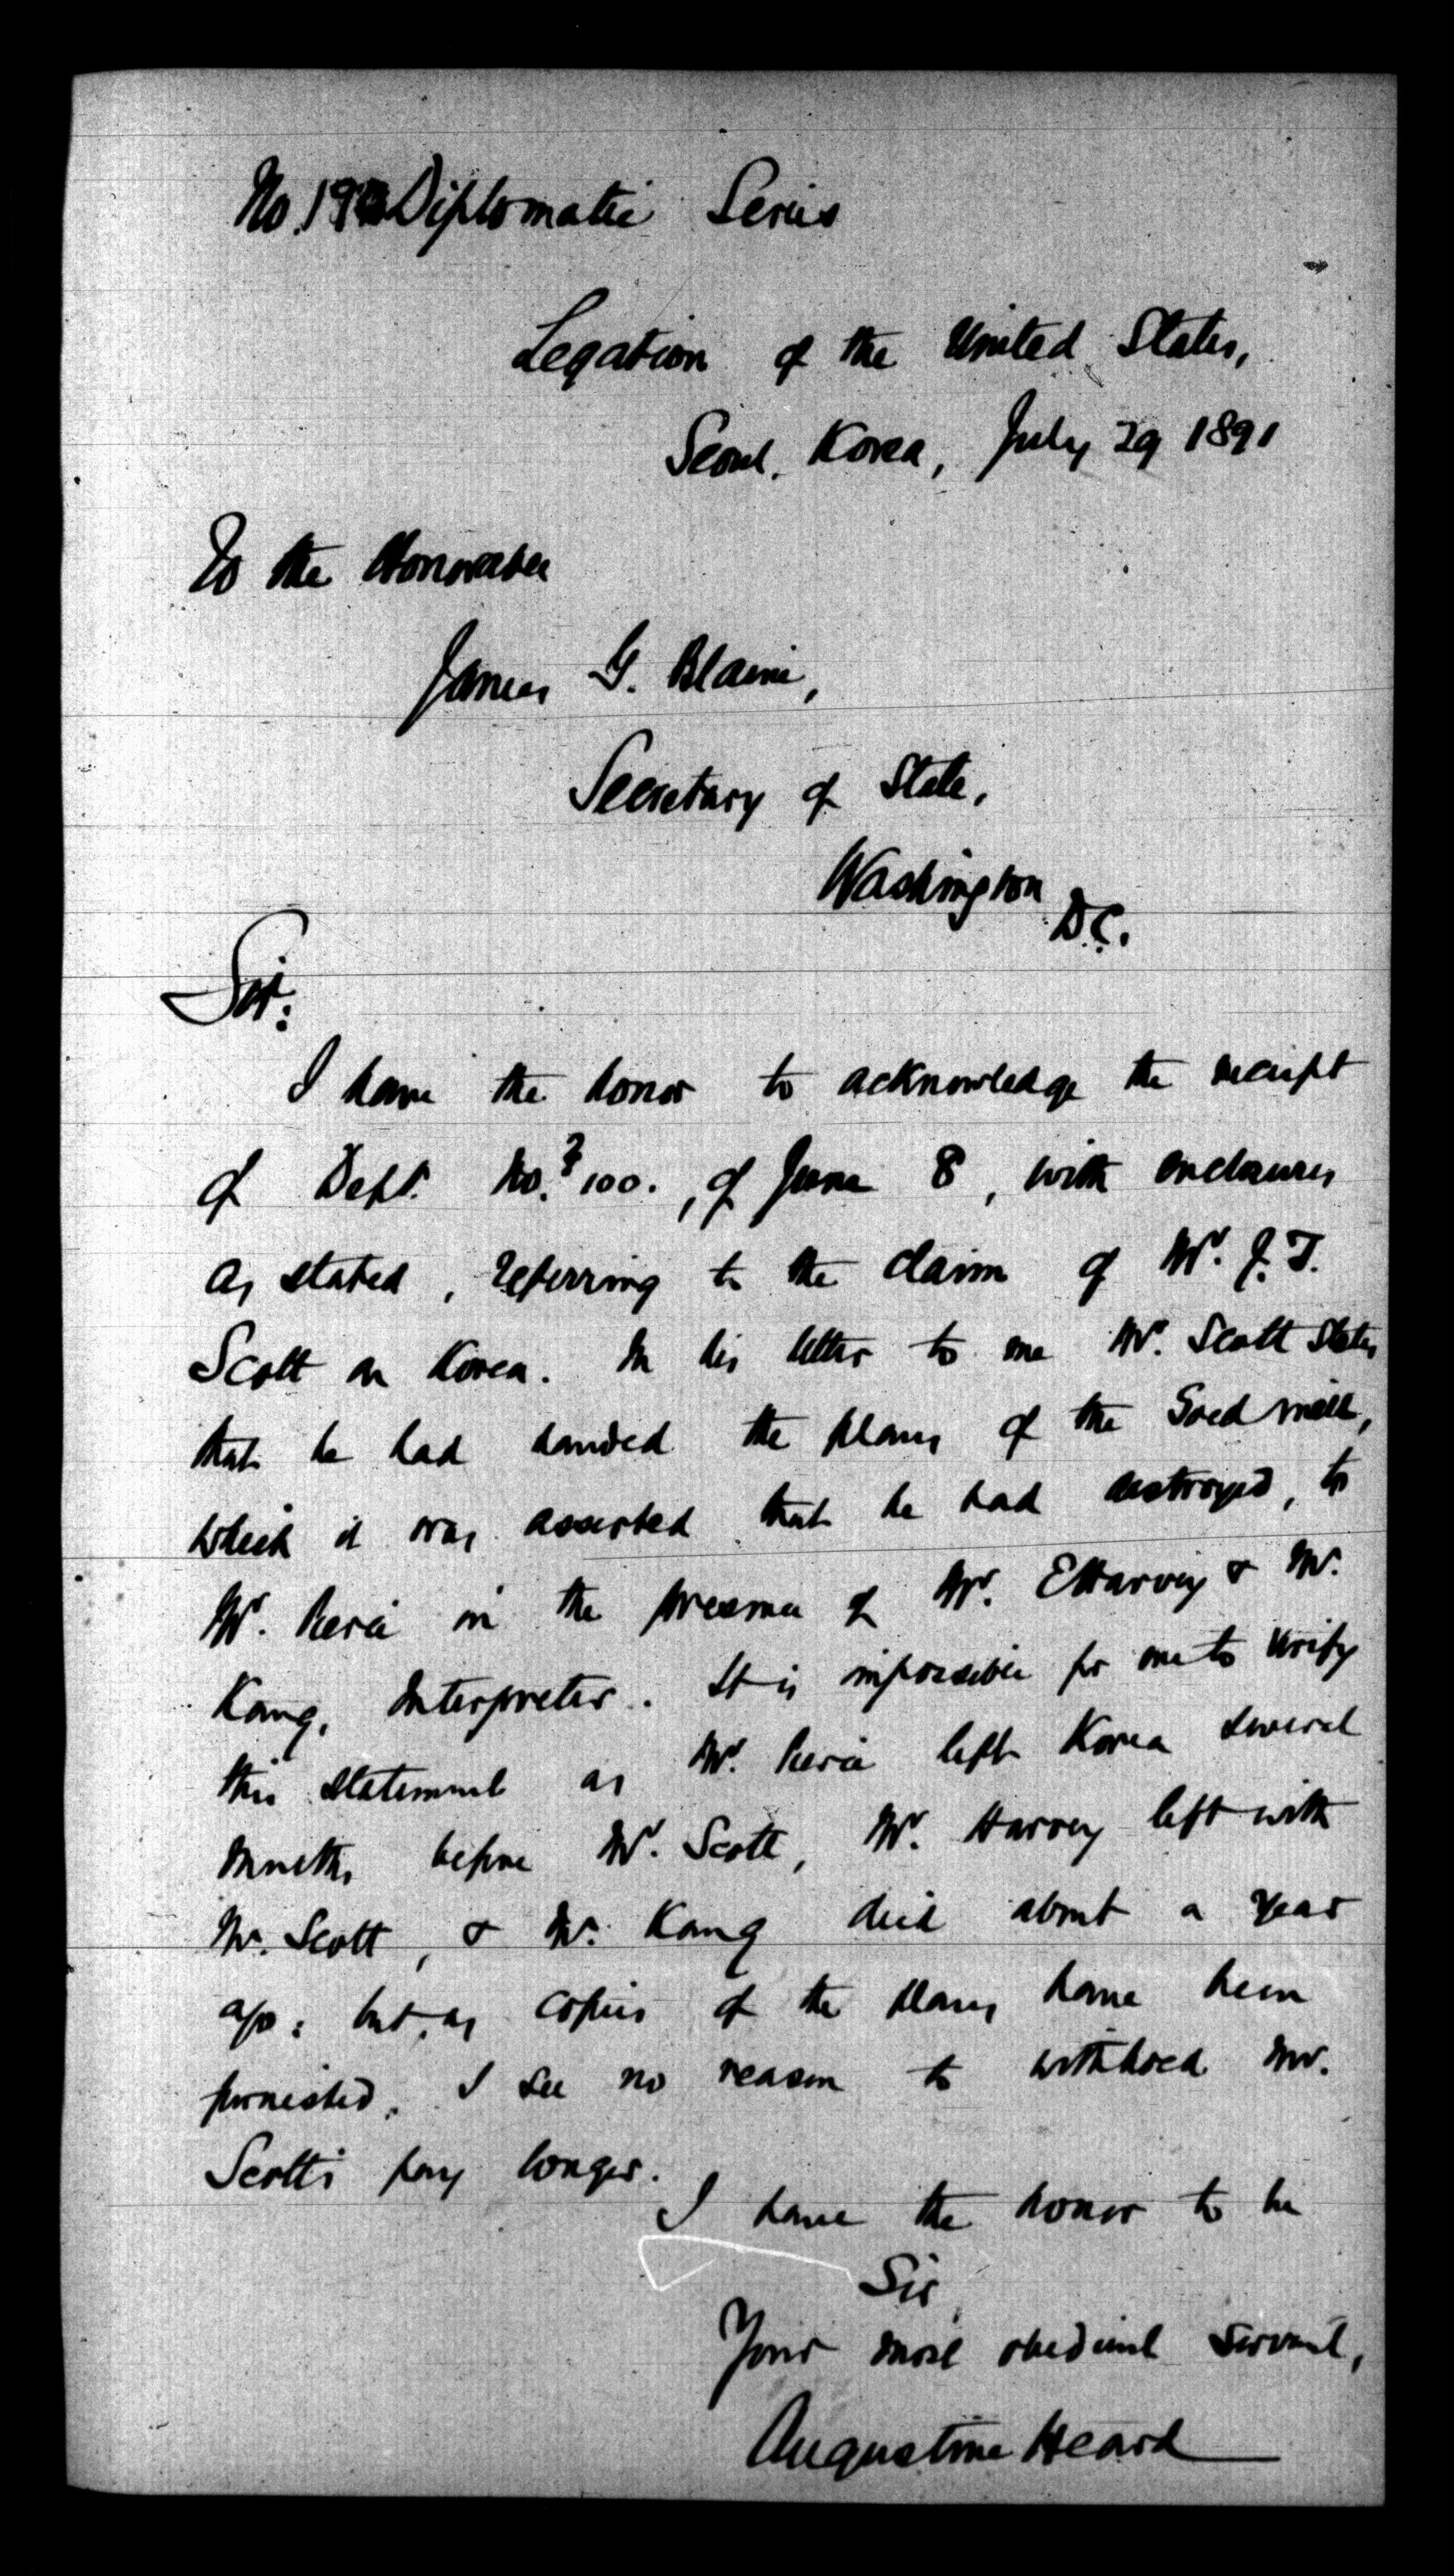 Diplomatic Series
Legation of the United States,
Seoul, Korea, July 29 1891
To the Honorable
James G. Blaine,
Secretary of State,
Washington
D.C.
Sir:
I have the honor to acknowledge the receipt
of Dept. No. 100. , of June 8, with enclosures
as stated, referring to the claim of Mr. J. T.
Scott on Korea. In his letter to me Mr. Scott states
that he had handed the plans of the Gold mill,
which it was asserted that he had destroyed, to
Mr. in the presence of Mr. E Harvey & Mr.
Kang, Interpreter. It is impossible for me to verify
this statement as Mr. left Korea several
months before Mr. Scott, Mr. Harvey left with
Mr. Scott, & Mr. Kang died about a year
ago: but, as copies of the plans have been
furnished, I see no reason to withhold Mr.
Scott's pay longer.
I have the honor to be
Sir
Your most obedient servant,
Augustine Heard